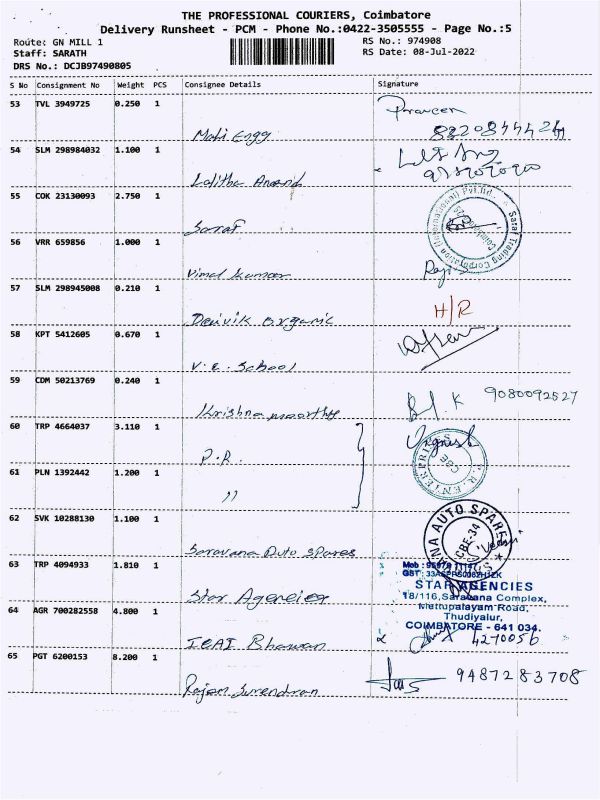 THE PROFESSIONAL COURIERS, Coimbatore
Delivery Runsheet - PCM - Phone No.:0422-3505555 - Page No.:5
Route: GN MILL 1
RS No.: 974908
Staff: SARATH
RS Date: 08-Jul-2022
DRS No.: DCJB97490805
S No Consignment No Weight PCS Consignee Details Signature
53 TVL 3949725 0.250 1
Praveen
Mati Engg
54 SLM 298984032 1.100 1
Lalitha Anand
55 COK 23130093 2.750 1
Saraf
Saraf Trading Corporation (International) Pvt.ltd.
Coimbatore
56 VRR 659856 1.000 1
Vimal kumar
57 SLM 298945008 0.210 1
H/R
Deivik Organic
58 KPT 5412605 0.670 1
V.E. School
59 CDM 50213769 0.240 1
9080092527
Krishna moorthy
60 TRP 4664037 3.110 1
P.R.
P.R. ENTERPRISES
CBE
61 PLN 1392442 1.200 1
"
62 SVK 10288130 1.100 1
Saravana Auto Spares
AUTO SPARES
CBE-34
63 TRP 4094933 1.810 1
Star Agencies
STAR AGENCIES
18/116, Saravana Complex,
Mettupalayam Road,
Thudiyalur,
COIMBATORE - 641 034.
64 AGR 700282558 4.800 1
4270056
ICAI Bhawan
65 PGT 6200153 8.200 1
9487283708
Rajam Surendran